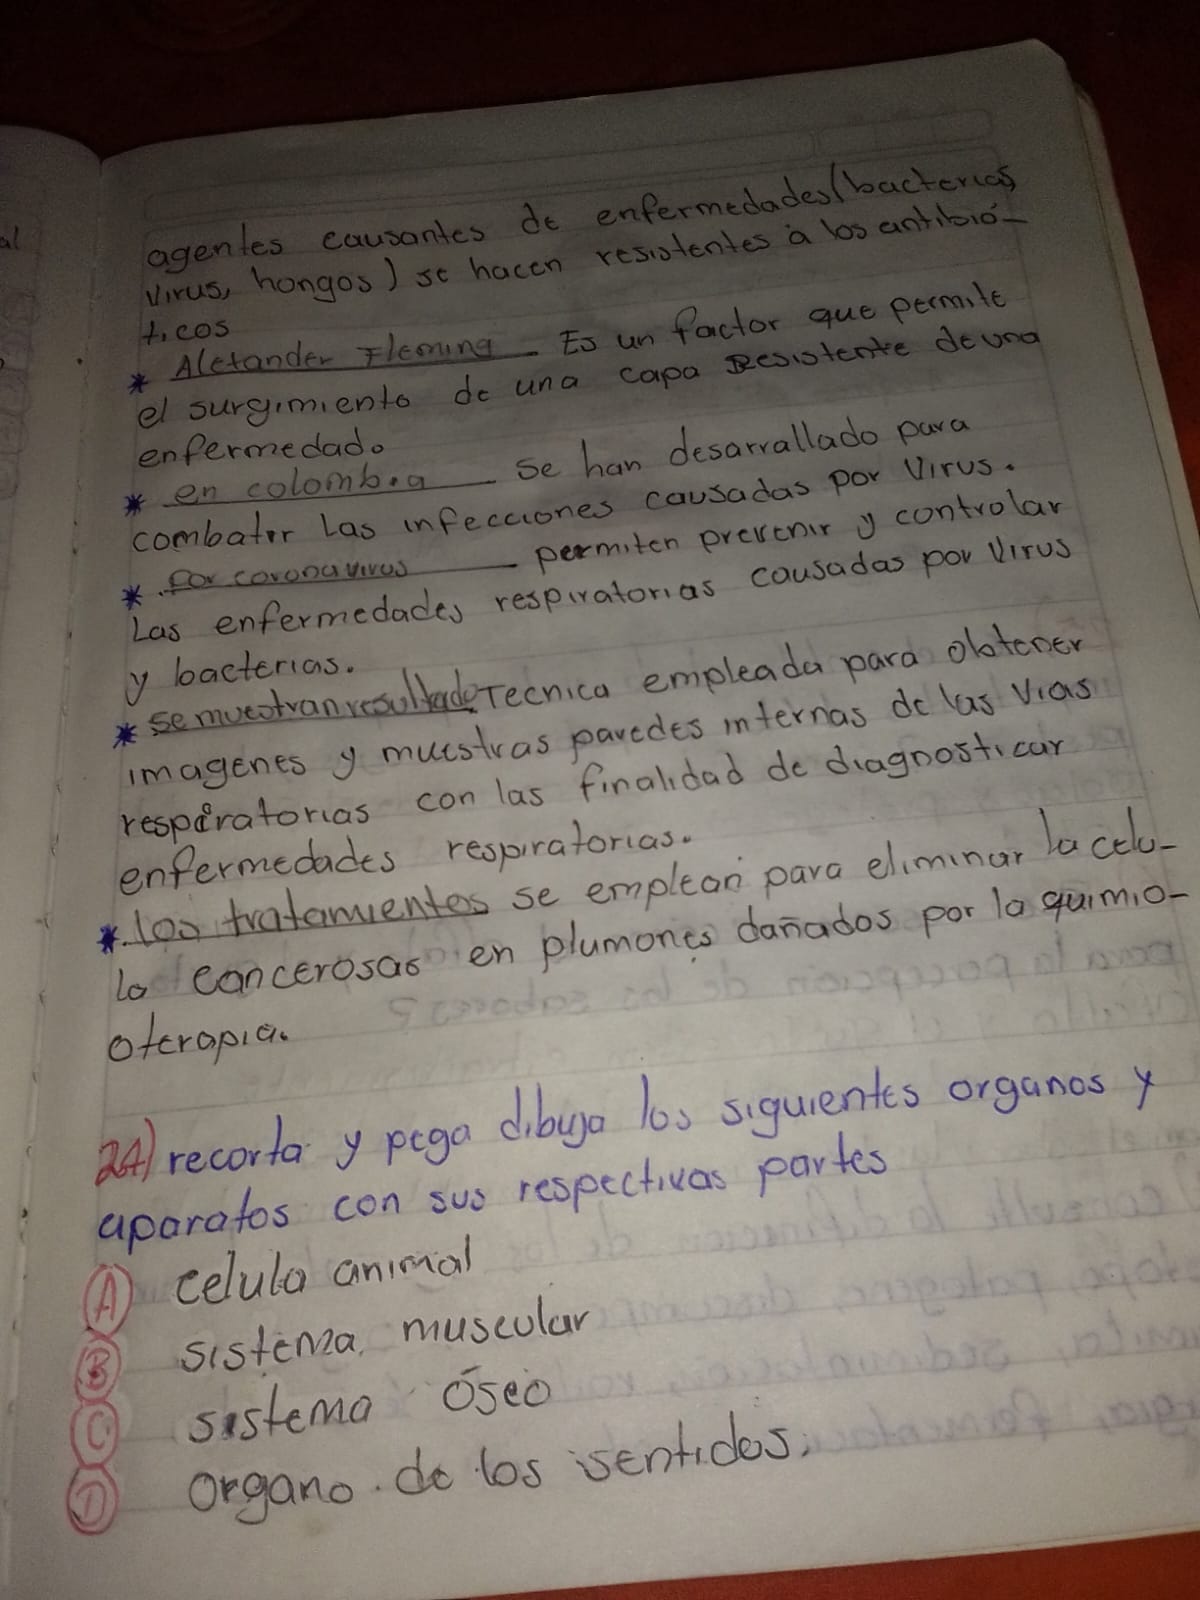 al
agentes causantes de enfermedades (bacterias,
virus, hongos) se hacen resistentes a los antibió-
ticos
* Aletander Fleming. Es un factor que permite
el surgimiento de una capa Resistente de una
enfermedad.
* en colombia se han desarrallado para
combatir Las infecciones causadas por Virus.
* .por coronavirus permiten prevenir y controlar
Las enfermedades respiratorias causadas por Virus
y bacterias.
* se muestran resultado Tecnica empleada para obtener
imagenes y muestras paredes internas de las vias
respiratorias con las finalidad de diagnosticar
enfermedades respiratorias.
*. los tratamientos se emplean para eliminar la celu-
la cancerosas en plumones dañados por la quimio-
oterapia.
24) recorta y pega dibuja los siguientes organos y
aparatos con sus respectivas partes
A) celula animal
B) sistema muscular
C) sistema óseo
D) organo de los sentidos.